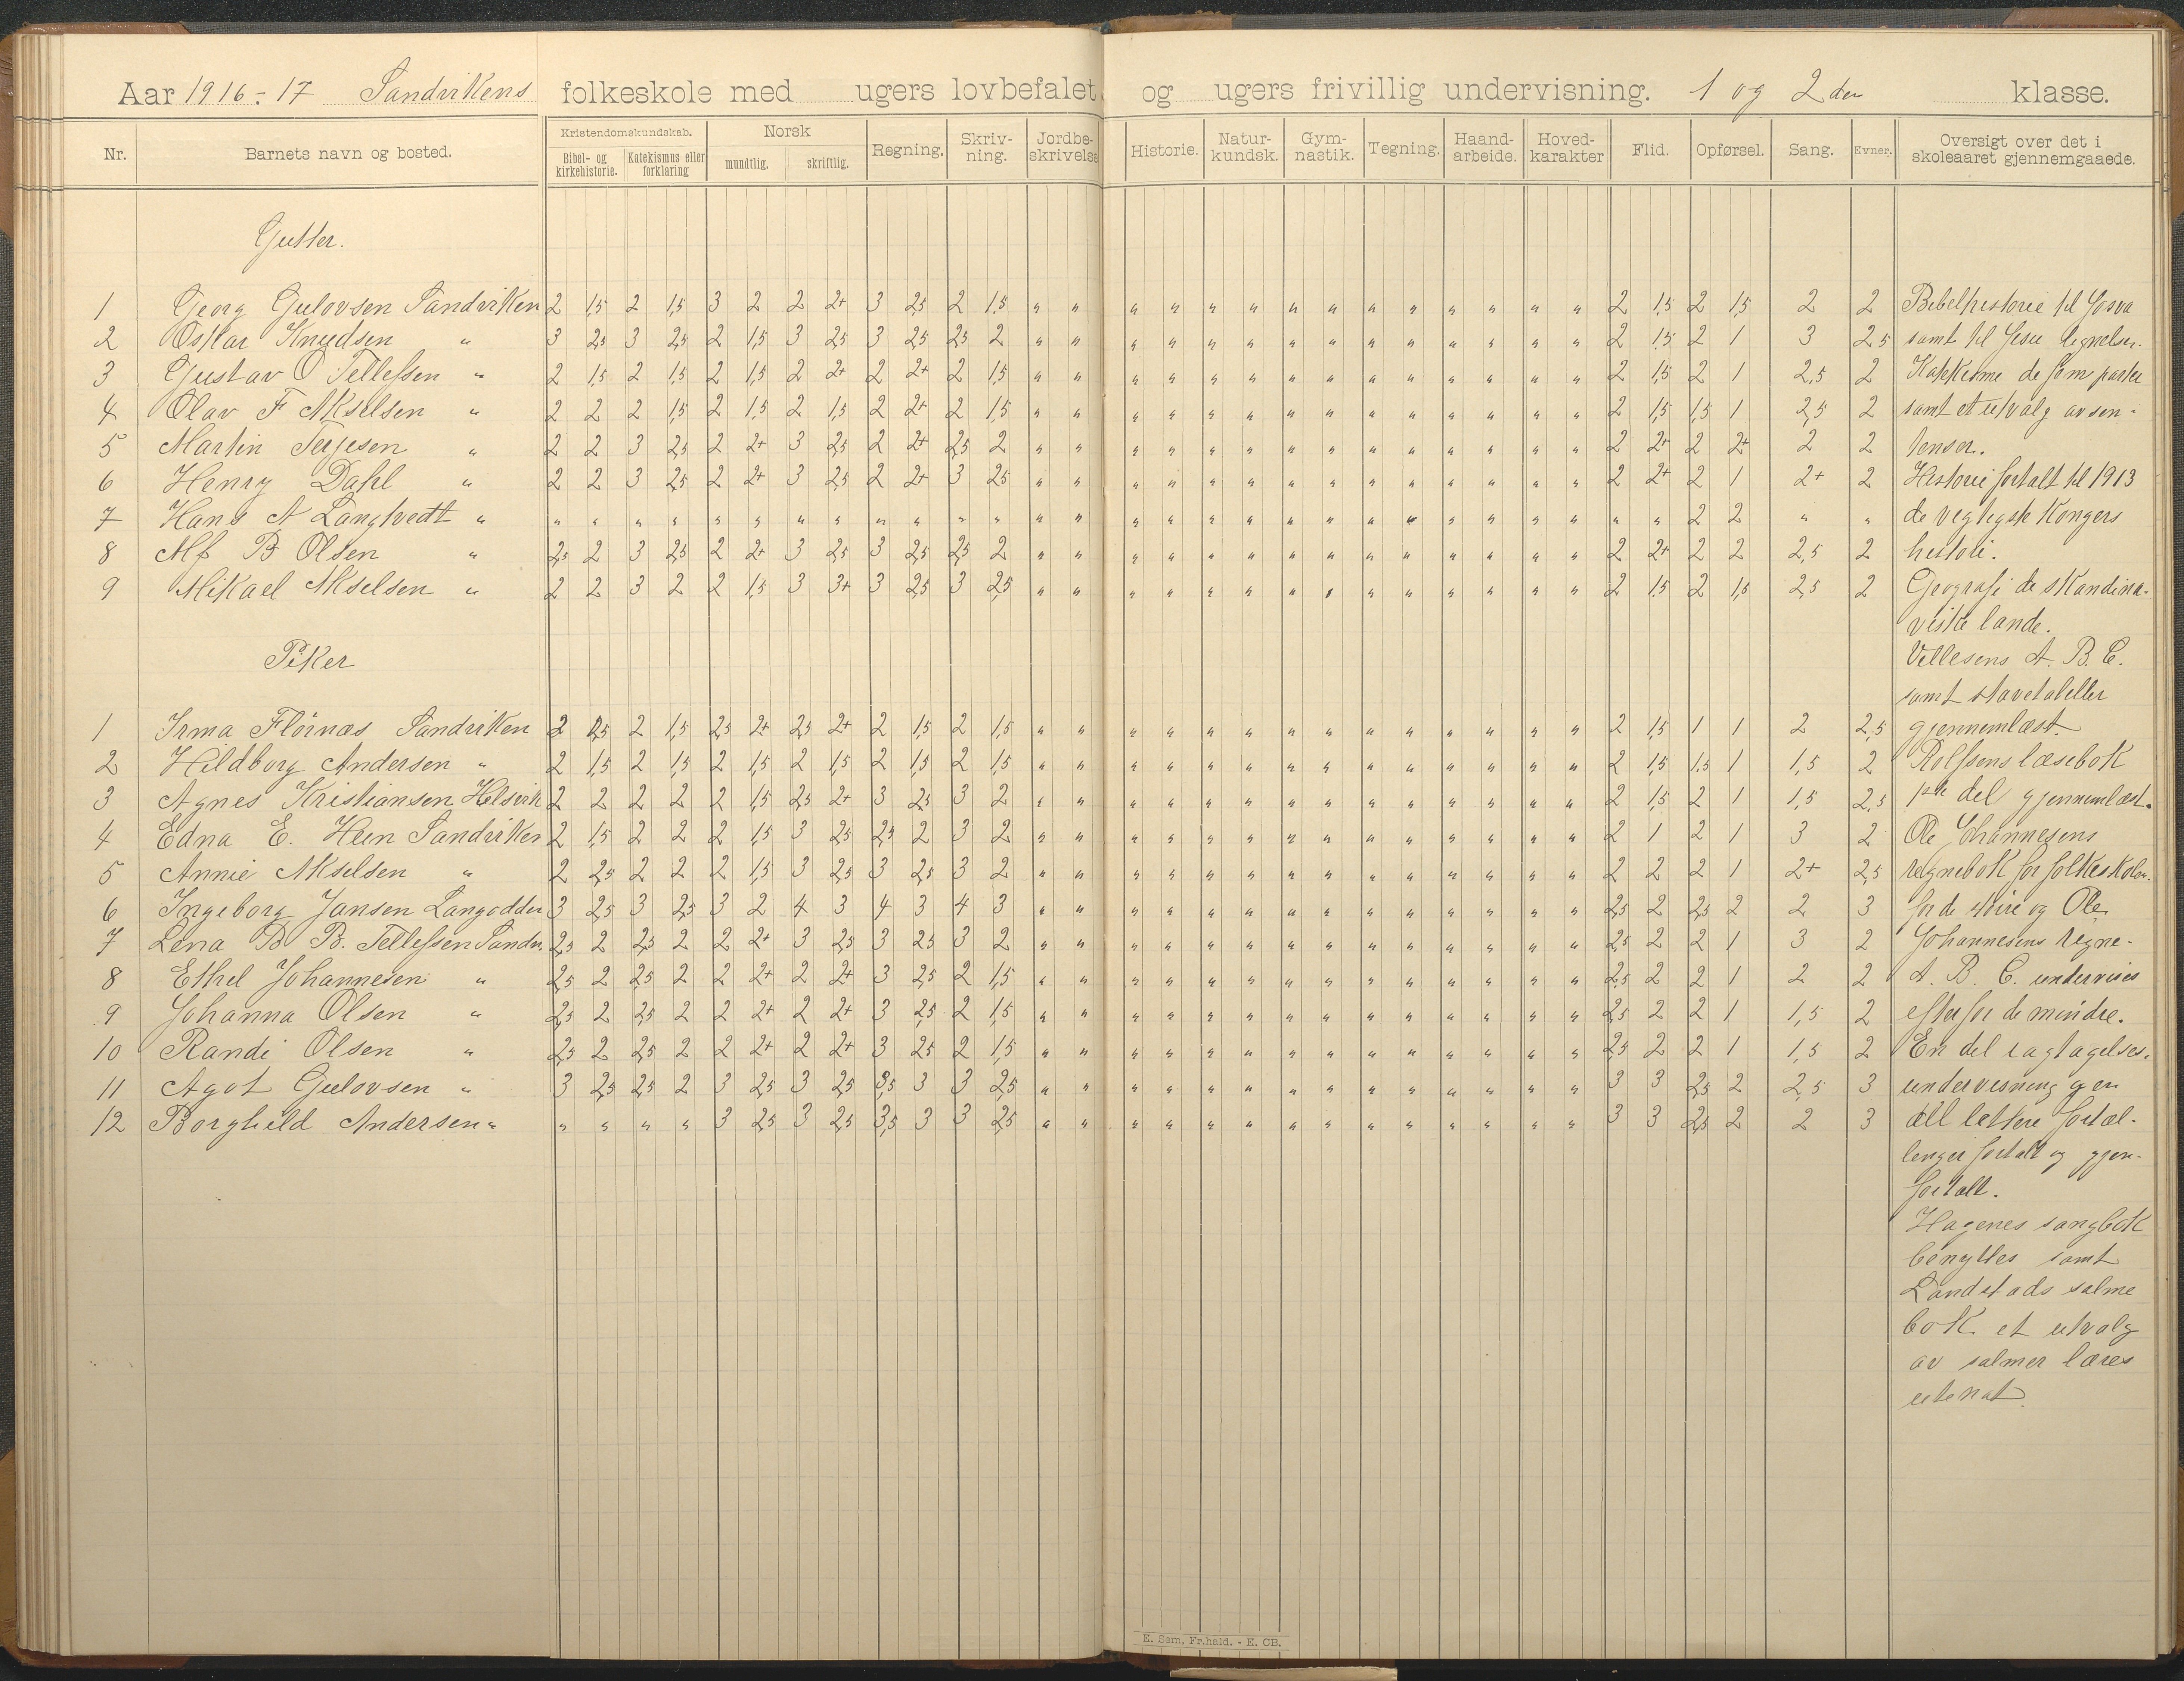 Aar 1916-17 Sandvikens folkeskole med ugers lovbefalet og ugers frivillig undervisning. 1 og 2den klasse.
Nr. Barnets navn og bosted. Kristendomskundskab. Bibel- og kirkehistorie. Katekismus eller forklaring Norsk mundtlig. skriftlig. Regning. Skriv-ning. Jordbe-skrivelse Historie. Natur-kundsk. Gym-nastik. Tegning. Haand-arbeide. Hoved-karakter Flid. Opførsel. Sang. Evner. Oversigt over det i skoleaaret gjennemgaaede.
Gutter.
1 Georg Gulovsen Sandviken 2 1,5 2 1,5 3 2 2 2+ 3 2,5 2 1,5 " " " " " " " " " " " " " " 2 1,5 2 1,5 2 2 Bibelhistorie til Josva
2 Oskar Knudsen " 3 2,5 3 2,5 2 1,5 3 2,5 3 2,5 2,5 2 " " " " " " " " " " " " " " 2 1,5 2 1 3 2,5 samt til Jesu lignelser.
3 Gustav O Tellefsen " 2 1,5 2 1,5 2 1,5 2 2+ 2 2+ 2 1,5 " " " " " " " " " " " " " " 2 1,5 2 1 2,5 2 Katekisme de fem parter
4 Olav F Akselsen " 2 2 2 1,5 2 1,5 2 1,5 2 2+ 2 1,5 " " " " " " " " " " " " " " 2 1,5 1,5 1 2,5 2 samt et utvalg av sen-
5 Martin Terjesen " 2 2 3 2,5 2 2+ 3 2,5 2 2+ 2,5 2 " " " " " " " " " " " " " " 2 2+ 2 2+ 2 2 tenser.
6 Henry Dahl " 2 2 3 2,5 2 2+ 3 2,5 2 2+ 3 2,5 " " " " " " " " " " " " " " 2 2+ 2 1 2+ 2 Historie fortalt til 1913
7 Hans A Langtvedt " " " " " " " " " " " " " " " " " " " " " " " " " " " " " " 2 2 " " de vigtigste Kongers
8 Alf B Olsen " 2,5 2 3 2,5 2 2+ 3 2,5 3 2,5 2,5 2 " " " " " " " " " " " " " " 2 2+ 2 2 2,5 2 historie.
9 Mikael Akselsen " 2 2 3 2 2 1,5 3 3+ 3 2,5 3 2,5 " " " " " " " " " " " " " " 2 1,5 2 1,5 2,5 2 Geografi de skandina-
viske lande.
Piker Vellesens A. B. C.
samt stavetabeller
1 Irma Flörnæs Sandviken 2 1,5 2 1,5 2,5 2+ 2,5 2+ 2 1,5 2 1,5 " " " " " " " " " " " " " " 2 1,5 1 1 2 2,5 gjennemlæst.
2 Hildborg Andersen " 2 1,5 2 1,5 2 1,5 2 1,5 2 1,5 2 1,5 " " " " " " " " " " " " " " 2 1,5 1,5 1 1,5 2 Rolfsens læsebok
3 Agnes Kristiansen Helsvik 2 2 2 2 2 1,5 2,5 2+ 3 2,5 3 2 " " " " " " " " " " " " " " 2 1,5 2 1 1,5 2,5 1ste del gjennemlæst.
4 Edna E. Hein Sandviken 2 1,5 2 2 2 1,5 3 2,5 2,5 2 3 2 " " " " " " " " " " " " " " 2 1 2 1 3 2 Ole Johannesens
5 Annie Akselsen " 2 2,5 2 2 2 1,5 3 2,5 3 2,5 3 2 " " " " " " " " " " " " " " 2 2 2 1 2+ 2,5 regnebok for folkeskolen.
6 Ingeborg Jansen Langodden 3 2,5 3 2,5 3 2 4 3 4 3 4 3 " " " " " " " " " " " " " " 2,5 2 2,5 2 2 3 for de større og Ole
7 Lena B B. Tellefsen Sandv. 2,5 2 2,5 2 2 2+ 3 2,5 3 2,5 3 2 " " " " " " " " " " " " " " 2,5 2 2 1 3 2 Johannesens regne-
8 Ethel Johannesen " 2,5 2 2,5 2 2 2+ 2 2+ 3 2,5 2 1,5 " " " " " " " " " " " " " " 2,5 2 2 1 2 2 A. B. C. undervises
9 Johanna Olsen " 2,5 2 2,5 2 2 2+ 2 2+ 3 2,5 2 1,5 " " " " " " " " " " " " " " 2,5 2 2 1 1,5 2 efter for de mindre.
10 Randi Olsen " 2,5 2 2,5 2 2 2+ 2 2+ 3 2,5 2 1,5 " " " " " " " " " " " " " " 2,5 2 2 1 1,5 2 En del iagtagelses-
11 Agot Gulovsen " 3 2,5 2,5 2 3 2,5 3 2,5 3,5 3 3 2,5 " " " " " " " " " " " " " " 3 3 2,5 2 2,5 3 undervisning og en
12 Borghild Andersen " " " " " 3 2,5 3 2,5 3,5 3 3 2,5 " " " " " " " " " " " " " " 3 3 2,5 2 2 3 del lettere fortæl-
linger fortalt og gjen-
fortalt.
Hagenes sangbok
benyttes samt
Landstads salme
bok et utvalg
av salmer læres
utenat.
E. Sem, Fr.hald. - E. CB.